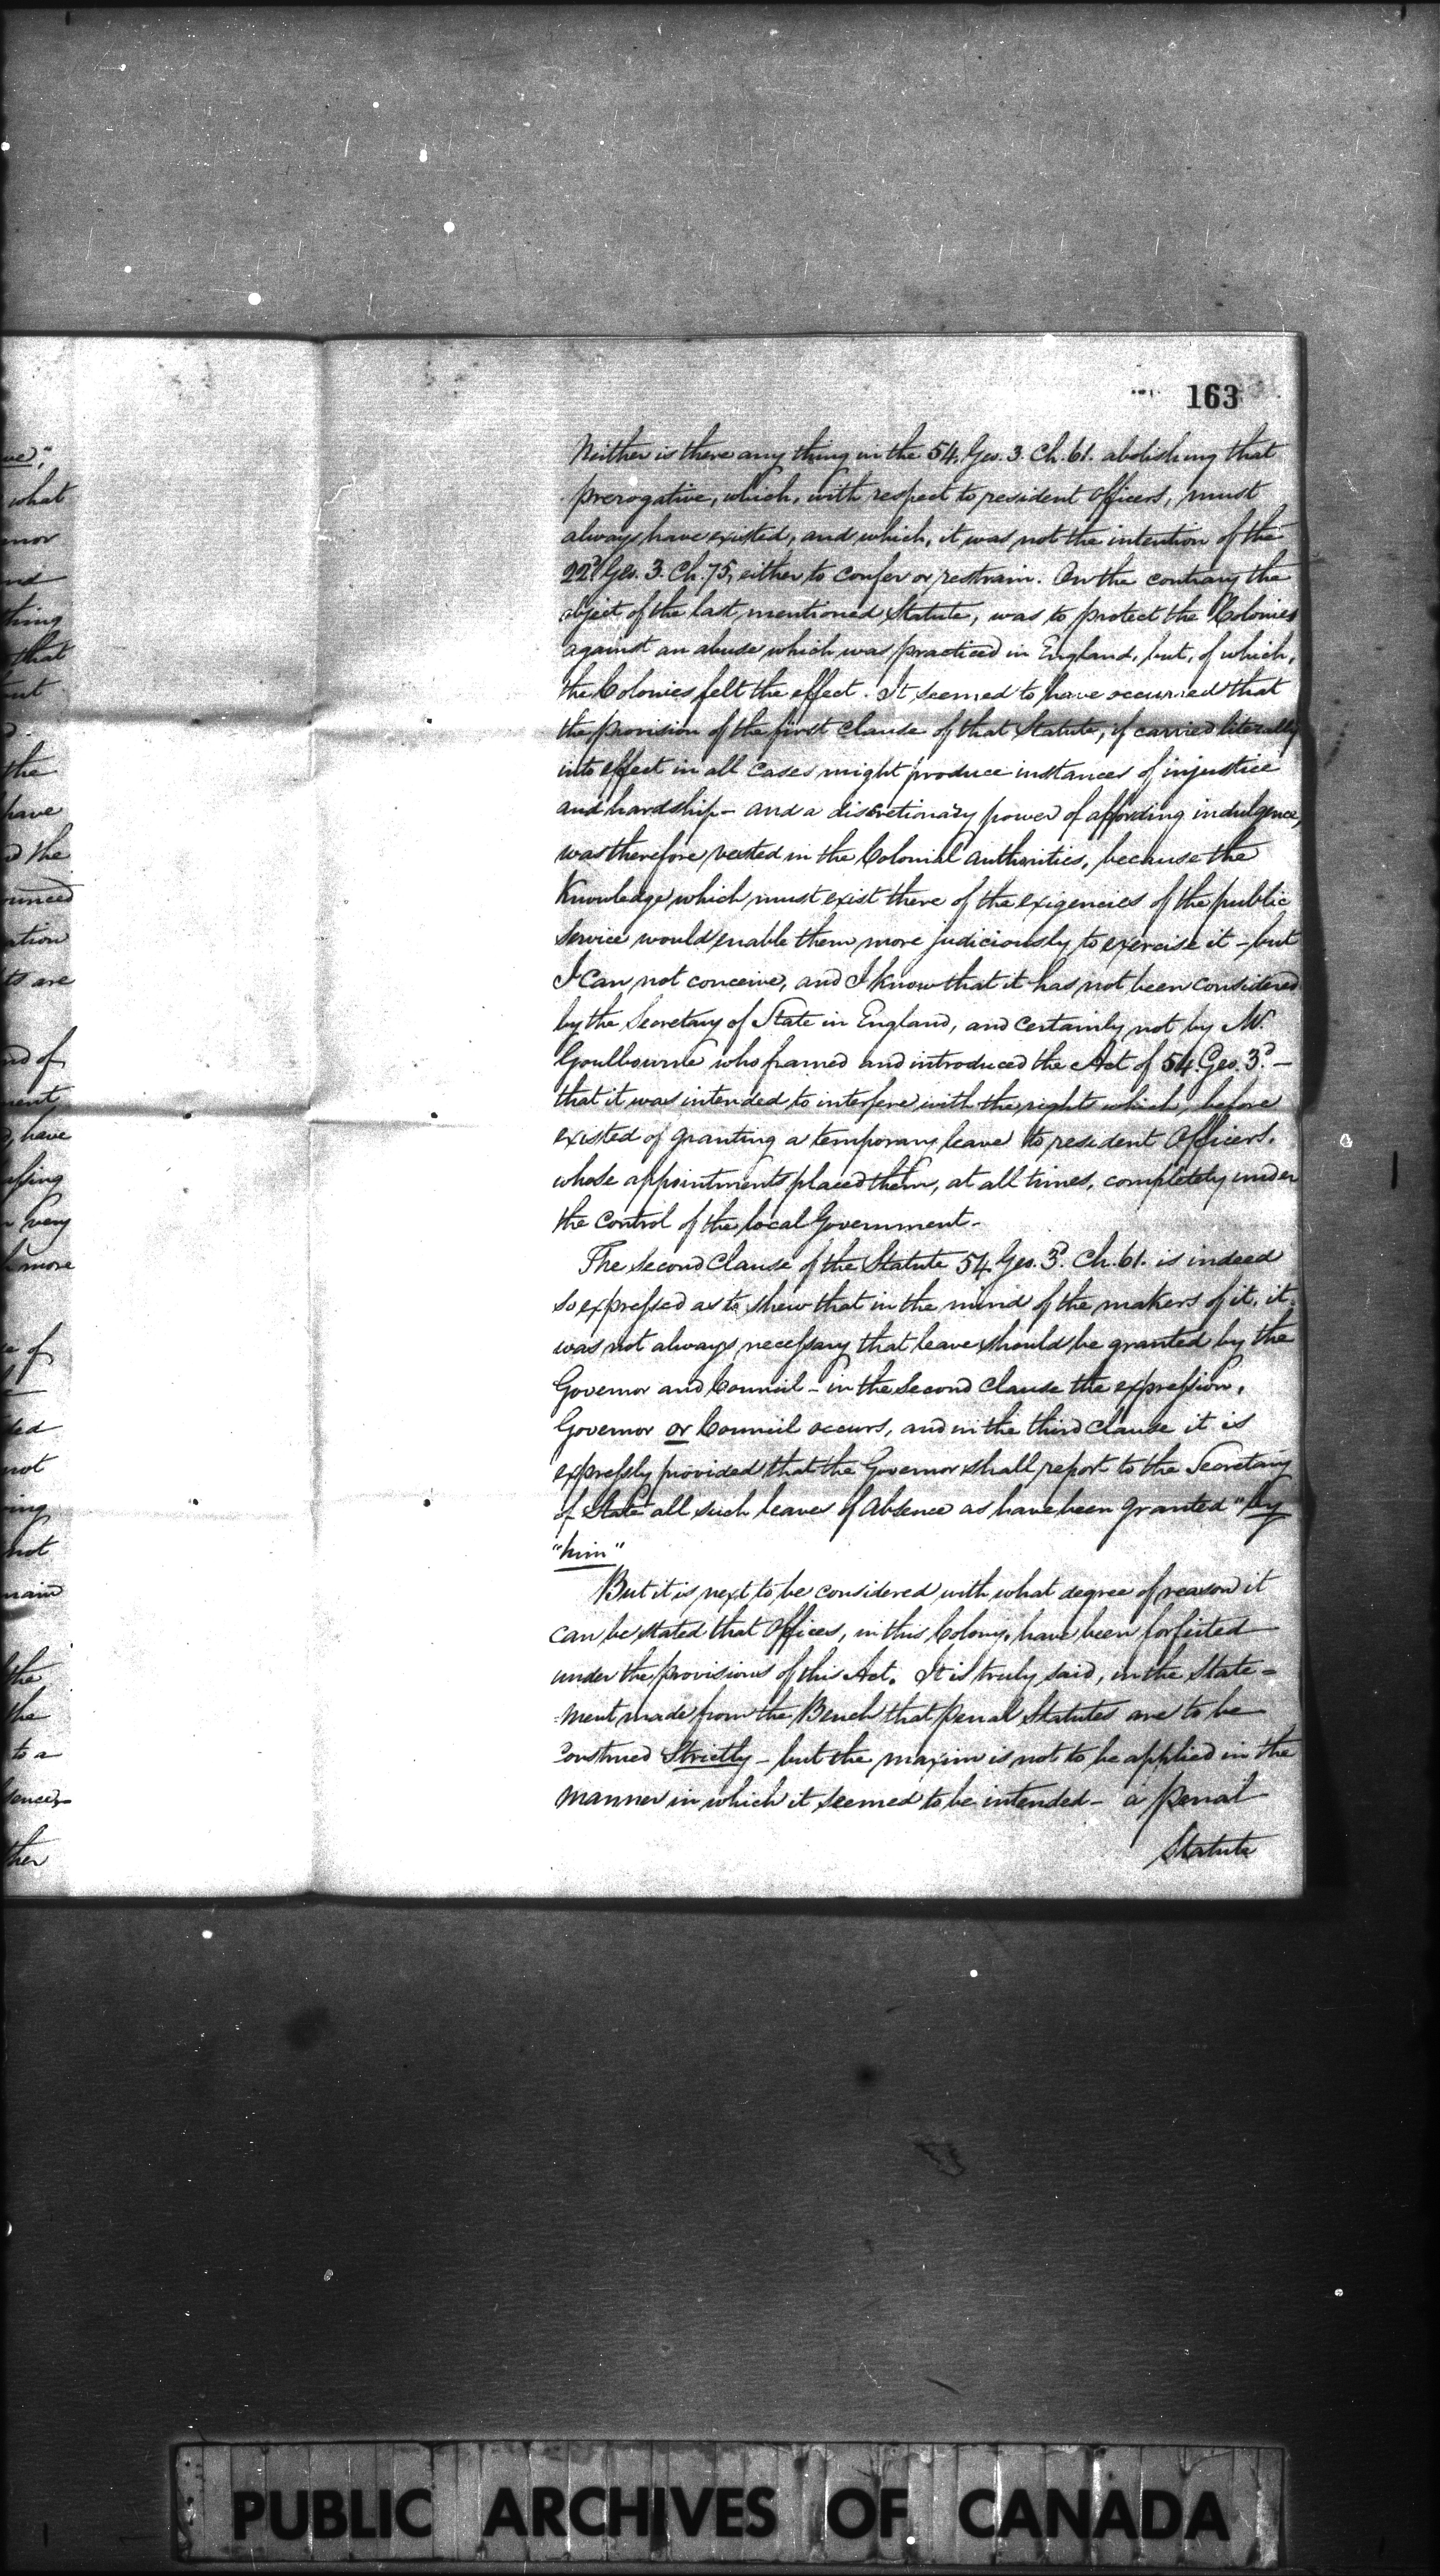 163
Neither is there any thing in the 54. Geo. 3. Ch. 61. abolishing that
prerogative, which, with respect to resident officers, must
always have existed, and which, it was not the intention of the
22d Geo. 3. Ch. 75, either to confer or restrain. On the contrary the
object of the last mentioned Statute, was to protect the Colonies
against an abuse which was practiced in England, but, of which,
the Colonies felt the effect. It seemed to have occurred that
the provision of the first clause of that Statute, if carried literally
into effect in all cases might produce instances of injustice
and hardship - and a discretionary power of affording indulgence,
was therefore vested in the Colonial authorities, because the
knowledge which must exist there of the exigencies of the public
service would enable them more judiciously to exercise it - but
I can not conceive, and I know that it has not been considered
by the Secretary of State in England, and certainly not by Mr.
Goulbourne who framed and introduced the Act of 54. Geo. 3d. -
that it was intended to interfere with the right which, before
existed of granting a temporary leave to resident Officers.
whose appointments placed them, at all times, completely under
the control of the local Government -
The second Clause of the Statute 54 Geo. 3d. Ch. 61. is indeed
so expressed as to shew that in the mind of the makers of it, it
was not always necessary that leave should be granted by the
Governor and Council - in the second clause the expression,
Governor or Council occurs, and in the third clause it is
expressly provided that the Governor shall report to the Secretary
of State all such leaves of absence as have been granted "by
"him"
But it is next to be considered with what degree of reason it
can be stated that Offices, in this Colony, have been forfeited
under the provisions of this Act. It is truly said, in the State =
=ment made from the Bench that penal Statutes are to be
Construed Strictly - but the maxim is not to be applied in the
manner in which it seemed to be intended - a penal
Statute
what
thing
that
the
have
the
are
of
have
very
more
of
not
not
the
the
to a
PUBLIC ARCHIVES OF CANADA